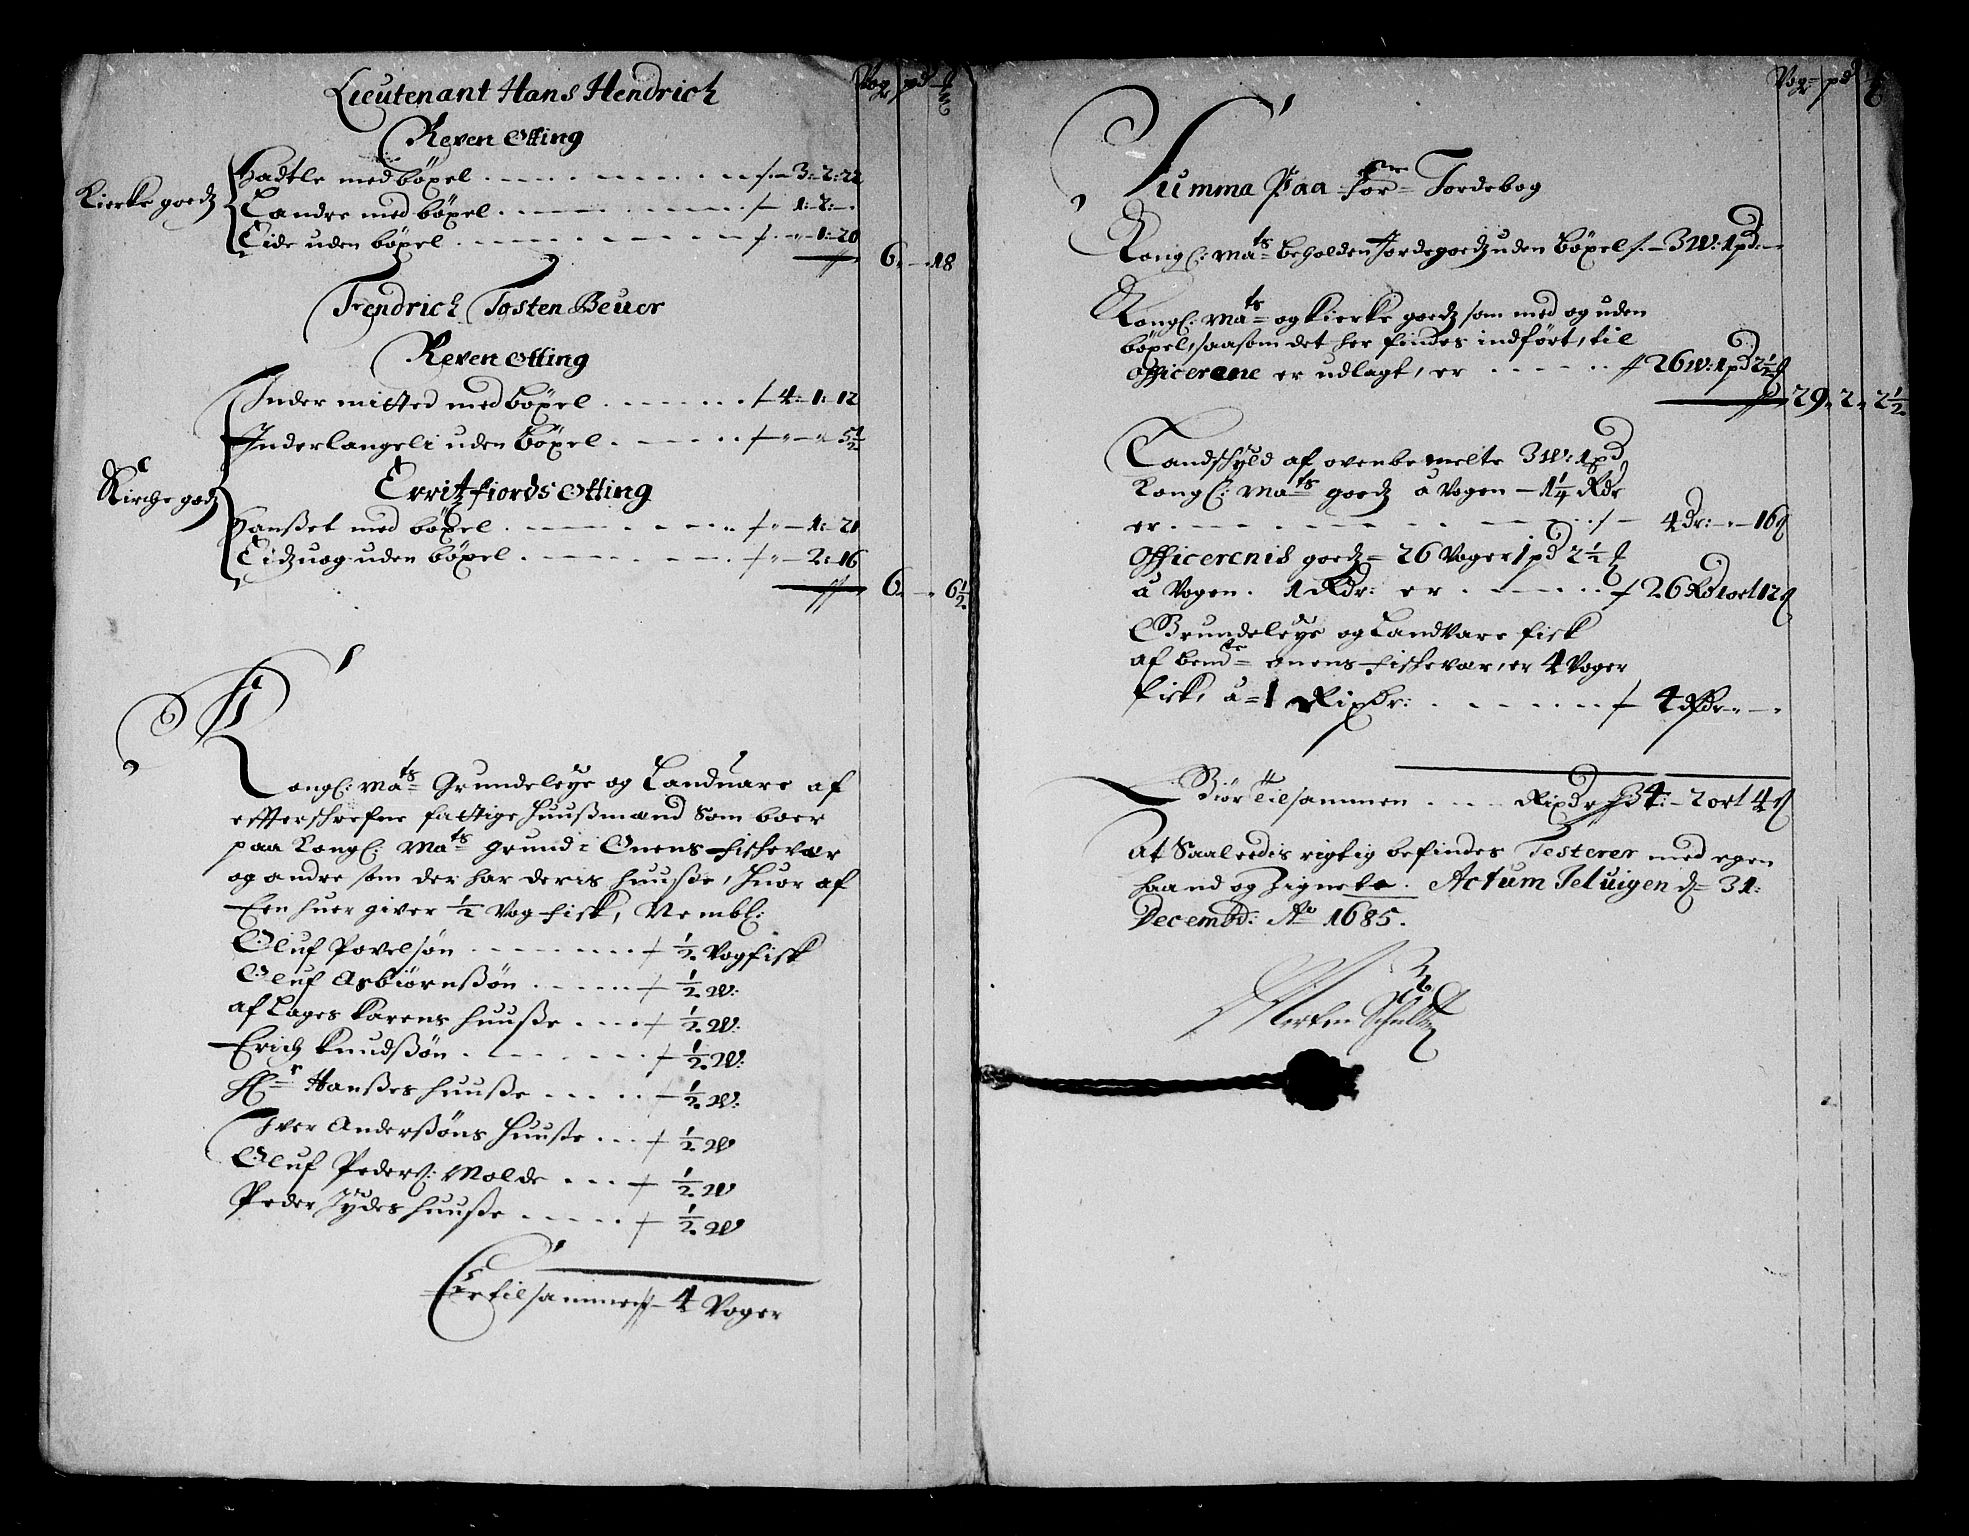 Vog pd ℔
Lieutenant Hans Hendrich
Reven otting
Kierke goedz
Hadtle med böxel ⁒ 3: 2: 22
Landre med böxel ⁒ 1: 2: -
Eide uden böxel ⁒ " 1: 20
6. - 18
Fendrich Tosten Beuer
Reven otting
Inder mitted med böxel ⁒ 4: 1: 12
Inderlangeli uden böxel ⁒ " - " 5½
Kirche godz
Erritzfiords otting
Hansset med böxel ⁒ " 1: 21
Eidzuog uden böxel ⁒ " 2: 16
6. - 6½
Kongl: Mats Grundeleye og Landuare af
effterschrefne fattige Huussmænd Som boer
paa Kongl: Mats grund i Onens fischevær
og andre som der har deris huusse, huor af
Een huer giver ½ Vog fisk, Nembl:
Oluf Povelsøn ½ Vog fisk
Oluf Asbiørnssøn ½ W:
af Lages Karens huusse ½ W:
Erich Knudssøn ½ W:
Hr Hansses huusse ½ W:
Iver Anderssøns Huusse ½ W
Oluf Peders: Molde ½ W
Peder Jydes huusse ½ W
Er tilsammen 4 Voger
Vog pd ℔
Summa Paa for Jordebog
Kongl: Mats beholden Jordegoedz uden Böxel 3W: 1pd: -
Kongl: Mats og Kierke goedz som med og uden
böxel, saasom det her findes indført, til
officererne er udlagt, er 26W: 1pd 2½
29. 2. 2½
Landschyld af ovenbemelte 3W: 1pd
Kongl: Mats goedz a Vogen 1¼ Rdr
er 4dr: - 16
Officerernis goedz 26 Voger 1pd 2½
a Vogen 1 Rdr: er 26 Rd 1 ort 12
Grundeleye og Landvare fisk
af bemte onens fischevær, er 4 Voger
fisk, a 1 Rixdr: 4 Rdr -
Giør Tilsammen Rixdr 34: 2 ort 4
At Saaleedis rigtig befindes Testerer med egen
haand og Zignete. Actum Teluigen d 31:
Decembr: Ao 1685.
Morten Schultz